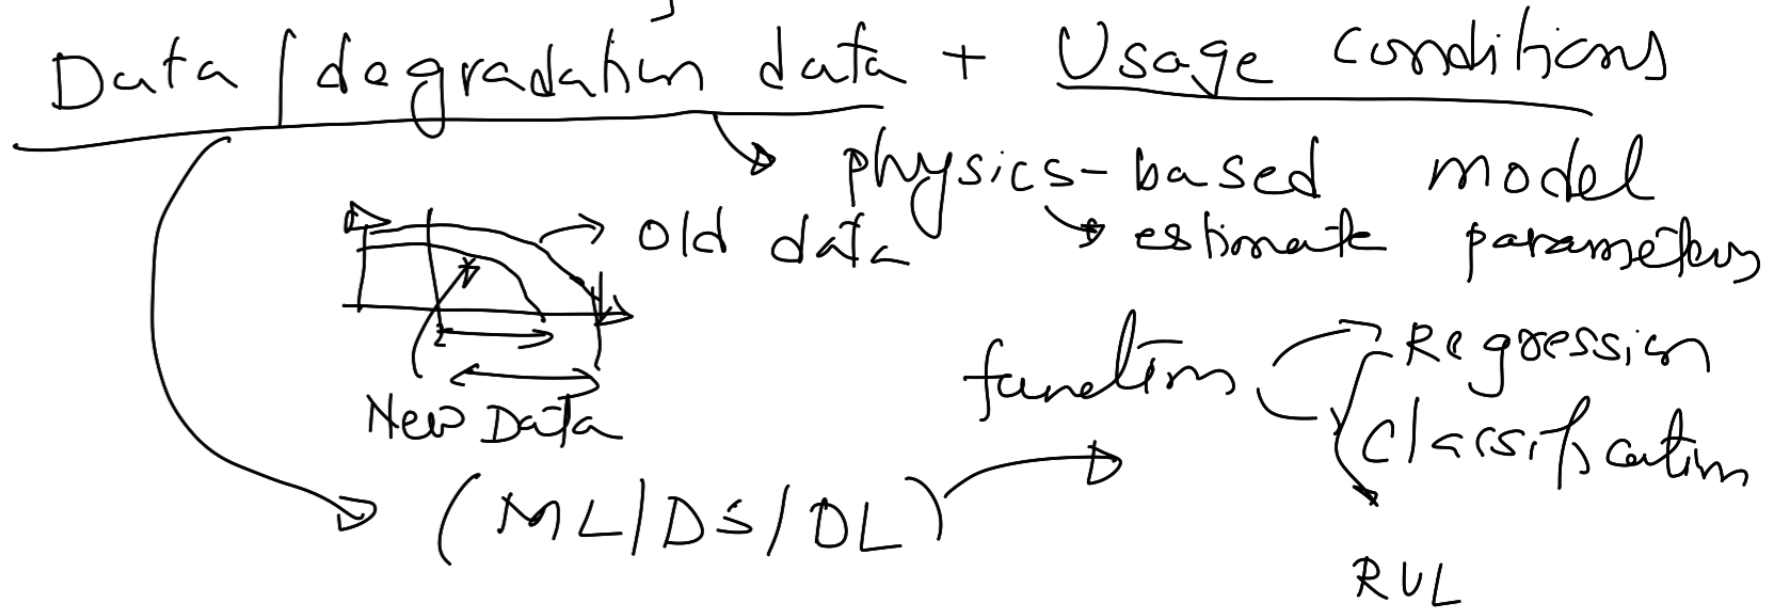 Data / degradation data + Usage conditions
physics-based model
old data
estimate parameters
New Data
function
Regression
Classification
(ML/DS/DL)
RUL